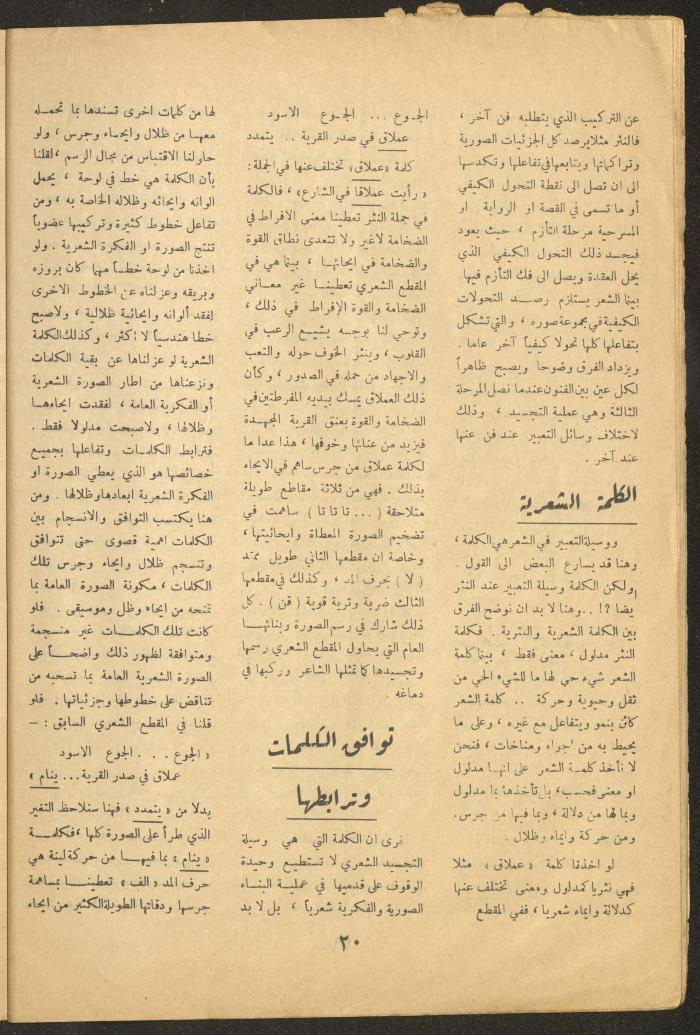 عن التركيب الذي يتطلبه فن آخر ،
فالنثر مثلا يرصد كل الجزئيات الصورية
وتراكماتها ويتابعها في تفاعلها وتكدسها
الى ان تصل الى نقطة التحول الكيفي
أو ما تسمى في القصة او الرواية او
المسرحية مرحلة التأزم ، حيث يعود
فيجسد ذلك التحول الكيفي الذي
يحل العقدة ويصل الى فك التأزم فيها
بينما الشعر يستلزم رصد التحولات
الكيفية في مجموعة صوره ، والتي تشكل
بتفاعلها كلها تحولا كيفياً آخر عاما .
ويزداد الفرق وضوحا ويصبح ظاهراً
لكل عين بين الفنون عندما نصل المرحلة
الثالثة وهي عملية التجسيد ، وذلك
لاختلاف وسائل التعبير عند فن عنها
عند آخر .
الكلمة الشعرية
ووسيلة التعبير في الشعر هي الكلمة ،
وهنا قد يسارع البعض الى القول .
ولكن الكلمة وسيلة التعبير عند النثر
يضا ?! .. وهنا لا بد ان نوضح الفرق
بين الكلمة الشعرية والنثرية . فكلمة
النثر مدلول ، معنى فقط ، بينما كلمة
الشعر شيء حي لها ما للشيء الحي من
ثقل وحيوية وحركة .. كلمة الشعر
كائن ينمو ويتفاعل مع غيره ، وعلى ما
يحيط به من اجواء ومناخات ، فنحن
لا نأخذ كلمة الشعر على انها مدلول
او معنى فحسب ، بل نأخذها بما مدلول
وبما لها من دلالة ، وبما فيها من جرس.
ومن حركة وايماء وظلال .
لو اخذنا كلمة « عملاق » مثلا
فهي نثريا كمدلول ومعنى تختلف عنها
كدلالة وايماء شعريا ، ففي المقطع
الجـوع ... الجـوع الاسود
عملاق في صدر القرية .. يتمدد
كلمة «عملاق» تختلف عنها في الجملة :
« رأيت عملاقا في الشارع » ، فالكلمة
في جملة النثر تعطينا معنى الافراط في
الضخامة لاغير ولا تتعدى نطاق القوة
والضخامة في ايحائها ، بينما هي في
المقطع الشعري تعطينا غير معاني
الضخامة والقوة الإفراط في ذلك ،
وتوحي لنا بوجه يشيع الرعب في
القلوب ، وينثر الخوف حوله والتعب
والاجهاد من حمله في الصدور ، وكأن
ذلك العملاق يمسك بيديه المفرطتين في
الضخامة والقوة بعنق القرية المجهدة
فيزيد من عنائها وخوفها ، هذا عدا ما
لكلمة عملاق من جرس ساهم في الايحاء
بذلك . فهي من ثلاثة مقاطع طويلة
متلاحقة ( ... تا تا تا ) ساهمت في
تضخيم الصورة المعطاة وايحائيتها ،
وخاصة ان مقطعها الثاني طويل ممتد
( لا ) بحرف المد ، وكذلك في مقطعها
الثالث ضربة وترية قوية ( قن ) . كل
ذلك شارك في رسم الصورة وبنائها
العام التي يحاول المقطع الشعري رسمها
وتجسيدها كما تمثلها الشاعر وركبها في
دماغه .
توافق الكلمات
وترابطها
نرى ان الكلمة التي هي وسيلة
التجسيد الشعري لا تستطيع وحيدة
الوقوف على قدميها في عملية البناء
الصورية والفكرية شعرياً ، بل لا بد
لها من كلمات اخرى تسندها بما تحمله
معها من ظلال وايحاء وجرس ، ولو
حاولنا الاقتباس من مجال الرسم ، لقلنا
بأن الكلمة هي خط في لوحة ، يحمل
الوانه وايحائه وظلاله الخاصة به ، ومن
تفاعل خطوط كثيرة وتركيبها عضوياً
تنتج الصورة او الفكرة الشعرية . ولو
اخذنا من لوحة خطاً مهما كان بروزه
وبريقه وعزلناه عن الخطوط الاخرى
لفقد ألوانه وايحائية ظلالية ، ولاصبح
خطا هندسياً لا اكثر ، وكذلك الكلمة
الشعرية لو عزلناها عن بقية الكلمات
ونزعناها من اطار الصورة الشعرية
أو الفكرية العامة ، لفقدت ايحاءها
وظلالها ، ولاصبحت مدلولا فقط .
فترابط الكلمات وتفاعلها بجميع
خصائصها هو الذي يعطي الصورة او
الفكرة الشعرية ابعادها وظلالها . ومن
هنا يكتسب التوافق والانسجام بين
الكلمات اهمية قصوى حتى تتوافق
وتنسجم ظلال وايحاء وجرس تلك
الكلمات ، مكونة الصورة العامة بما
تمنحه من ايحاء وظل وموسيقى . فلو
كانت تلك الكلمات غير منسجمة
ومتوافقة لظهور ذلك واضحاً على
الصورة الشعرية العامة بما تسحبه من
تناقض على خطوطها وجزئياتها . فلو
قلنا في المقطع الشعري السابق : —
« الجوع ... الجوع الاسود
عملاق في صدر القرية ... ينام »
بدلا من « يتمدد » فهنا سنلاحظ التغير
الذي طرأ على الصورة كلها ، فكلمة
« ينام » بما فيها من حركة لينة هي
حرف المد « الف » تعطينا بمساهمة
جرسها ودقاتها الطويلة الكثير من ايحاء
٢٠